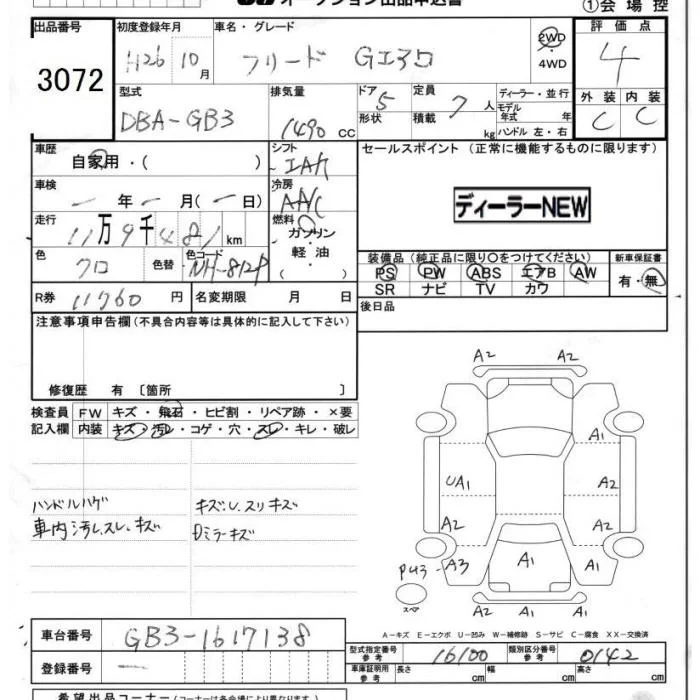 オークション出品申込書
①会場控
出品番号 初度登録年月 車名・グレード 評価点
3072 H26 10月 フリード Gエアロ 2WD・4WD 4
型式 排気量 ドア 定員 ディーラー・並行 外装 内装
DBA-GB3 1490 CC 5 7人 モデル年式 年 C C
形状 積載 kg ハンドル 左・右
車歴 シフト セールスポイント(正常に機能するものに限ります)
自家用・( ) IAT
車検 冷房 ディーラーNEW
一年一月(一日) AAC
走行 燃料
11万9千481km ガソリン
軽油
色 色替 色コード 装備品(純正品に限り○をつけてください) 新車保証書
クロ NH-812P PS PW ABS エアB AW 有・無
SR ナビ TV カワ
R券 11760円 名変期限 月 日 後日品
注意事項申告欄(不具合内容等は具体的に記入して下さい)
修復歴 有〔箇所 〕
検査員 FW キズ・飛石・ヒビ割・リペア跡・×要
記入欄 内装 キズ・汚レ・コゲ・穴・スレ・キレ・破レ
ハンドルハゲ キズ、U、スリキズ
車内汚レ、スレ、キズ Dミラーキズ
A2 A2
A1
UA1 A2
A2 A2
PU3-A3 A1 A1
スペア A1 A1
A-キズ E-エクボ U-凹み W-補修跡 S-サビ C-腐食 XX-交換済
車台番号 GB3-1617138
型式指定番号 参考 16100 類別区分番号 参考 0142
登録番号 一
車庫証明用 参考 長さ cm 幅 cm 高さ cm
希望出品コーナー(コーナーは各会場により異なります)